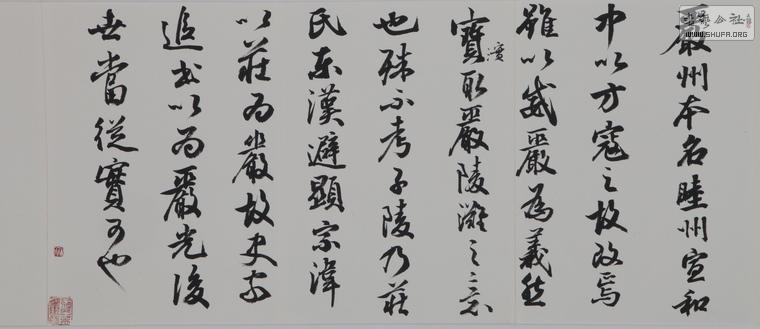 嚴州本名睦州宣和
中以方寇之故改焉
雖以威嚴為義然
實取嚴陵灘之意
濱
也殊不考子陵乃莊
氏東漢避顯宗諱
以莊為嚴故史家
追書以為嚴光後
世當從實可也
WWW.SHUFA.ORG